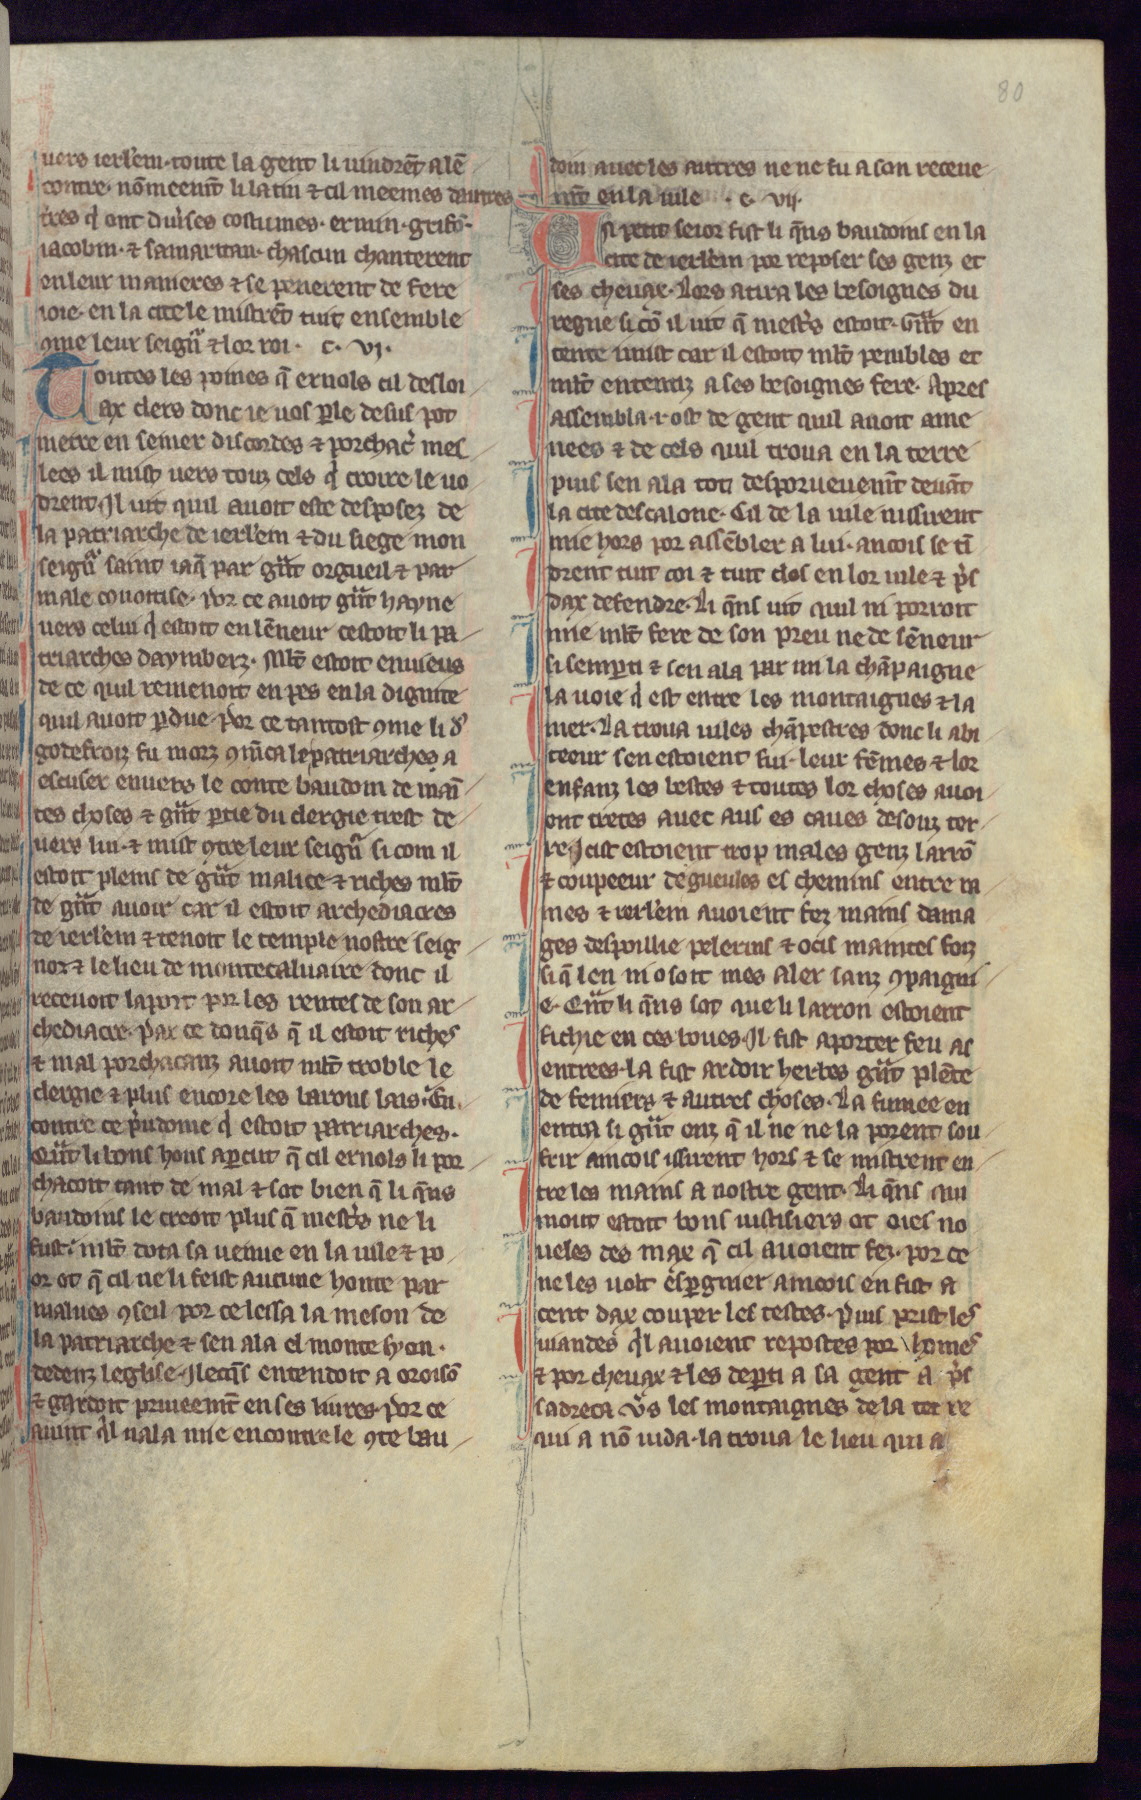 80
uers ierl'em· toute la gent li uindrẽt a lẽ
contre· nõmeem̃t li latin ⁊ cil meemes dautres
tres q̓ ont diu'ses costumes· ermin· grifõ·
iacobin· ⁊ samaritan· chascun chanterent
en leur manieres ⁊ se penerent de fere
ioie· en la cite le mistrẽt tuit ensemble
ꝯme leur seign̄r ⁊ lor roi· c· vi·
Toutes les poines q̃ ernols cil desloi
ax clers donc ie uos ꝑle desus pot
metre en semer discordes ⁊ porchac̓ mes
lees il mist uers touz cels q̓ croire le uo
drent· Il uit quil auoit este desposez de
la patriarche de ierl'em ⁊ du siege mon
seign̄r saint iaq̃ par gñt orgueil ⁊ par
male couoitise· por ce auoit gñt hayne
uers celui q̓ estoit en lẽneur cestoit li pa
triarches daymberz· Ml̃t estoit enuieus
de ce quil remenoit en pes en la dignite
quil auoit ꝑdue· por ce tantost ꝯme li d̓
godefroiz fu morz ꝯm̃ca le patriarches a
escuser enuers le conte baudoin de mañ
tes choses ⁊ gñt ꝑtie du clergie trest de
uers lui· ⁊ mist ꝯtre leur seign̄r si com il
estoit pleins de gñt malice ⁊ riches ml̃t
de gñt auoir car il estoit archediacres
de ierl'em ⁊ tenoit le temple nostre seig
nor ⁊ le lieu de montecaluaire donc il
receuoit la port por les rentes de son ar
chediacre· par ce donq̃s q̃ il estoit riches
⁊ mal porchacanz auoit ml̃t troble le
clergie ⁊ plus encore les barons lais· En
contre ce p̓udome q̓ estoit patriarches·
Qñt li bons hons aꝑcut q̃ cil ernols li por
chacoit tant de mal ⁊ sot bien q̃ li q̃ns
baudoins le creoit plus q̃ mest's ne li
fust· ml̃t dota sa uenue en la uile ⁊ po
or ot q̃ cil ne li feist aucune honte par
malues ꝯseil por ce lessa la meson de
la patriarche ⁊ sen ala el monte syon·
dedenz leglise· Ilecq̃s entendoit a oroisõ
⁊ gardoit priueem̃t en ses liures· por ce
auint q̓l nala mie encontre le ꝯte bau
doin auec les autres ne ne fu a son receue
m̃t en la uile· c· vii·
Si petit seior fist li q̃ns baudoins en la
cite de ierl'em por reposer ses genz et
ses cheuax· Lors atira les besoignes du
regne si cõ il uit q̃ mest's estoit· Gñt en
tente i mist car il estoit ml̃t penibles et
ml̃t ententiz a ses besoignes fere· Apres
assembla ·i· ost de gent quil auoit ame
nees ⁊ de cels quil troua en la terre
puis sen ala tot desporueuem̃t deuãt
la cite descalone· Cil de la uile nissirent
mie hors por assẽbler a lui· ancois se tĩ
drent tuit coi ⁊ tuit clos en lor uile ⁊ p̓s
dax defendre· Li q̃ns uit quil ni porroit
mie ml̃t fere de son preu ne de sẽneur
si semꝑti ⁊ sen ala par mi la chãpaigne
la uoie q̓ est entre les montaignes ⁊ la
mer· La troua uiles chãpestres donc li abi
teeur sen estoient fui· leur fẽmes ⁊ lor
enfanz les bestes ⁊ toutes lor choses auoi
ent tretes auec aus es caues desouz ter
re· Icist estoient trop males genz larrõ
⁊ coupeeur de gueules es chemins entre ra
mes ⁊ ierl'em auoient fez mains dama
ges despoillie pelerins ⁊ ocis maintes foiz
si q̃ len ni osoit mes aler sanz ꝯpaigni
e· Qñt li q̃ns sot que li larron estoient
fichie en ces boues· Il fist aporter feu as
entrees· la fist ardoir herbes gñt plẽte
de femiers ⁊ autres choses· La fumee en
entra si gñt enz q̃ il ne ne la porent sou
frir aincois issirent hors ⁊ se mistrent en
tre les mains a nostre gent· Li q̃ns qui
mout estoit bons iustisiers ot oies no
ueles des max q̃ cil auoient fez· por ce
ne les uolt esꝑgnier aincois en fist a
cent dax couper les testes· Puis prist les
uiandes q̓l auoient repostes por homes
⁊ por cheuax ⁊ les deꝑti a sa gent a p̓s
sadreca v̓s les montaignes de la terre
qui a nõ iuda· la troua le lieu qui a